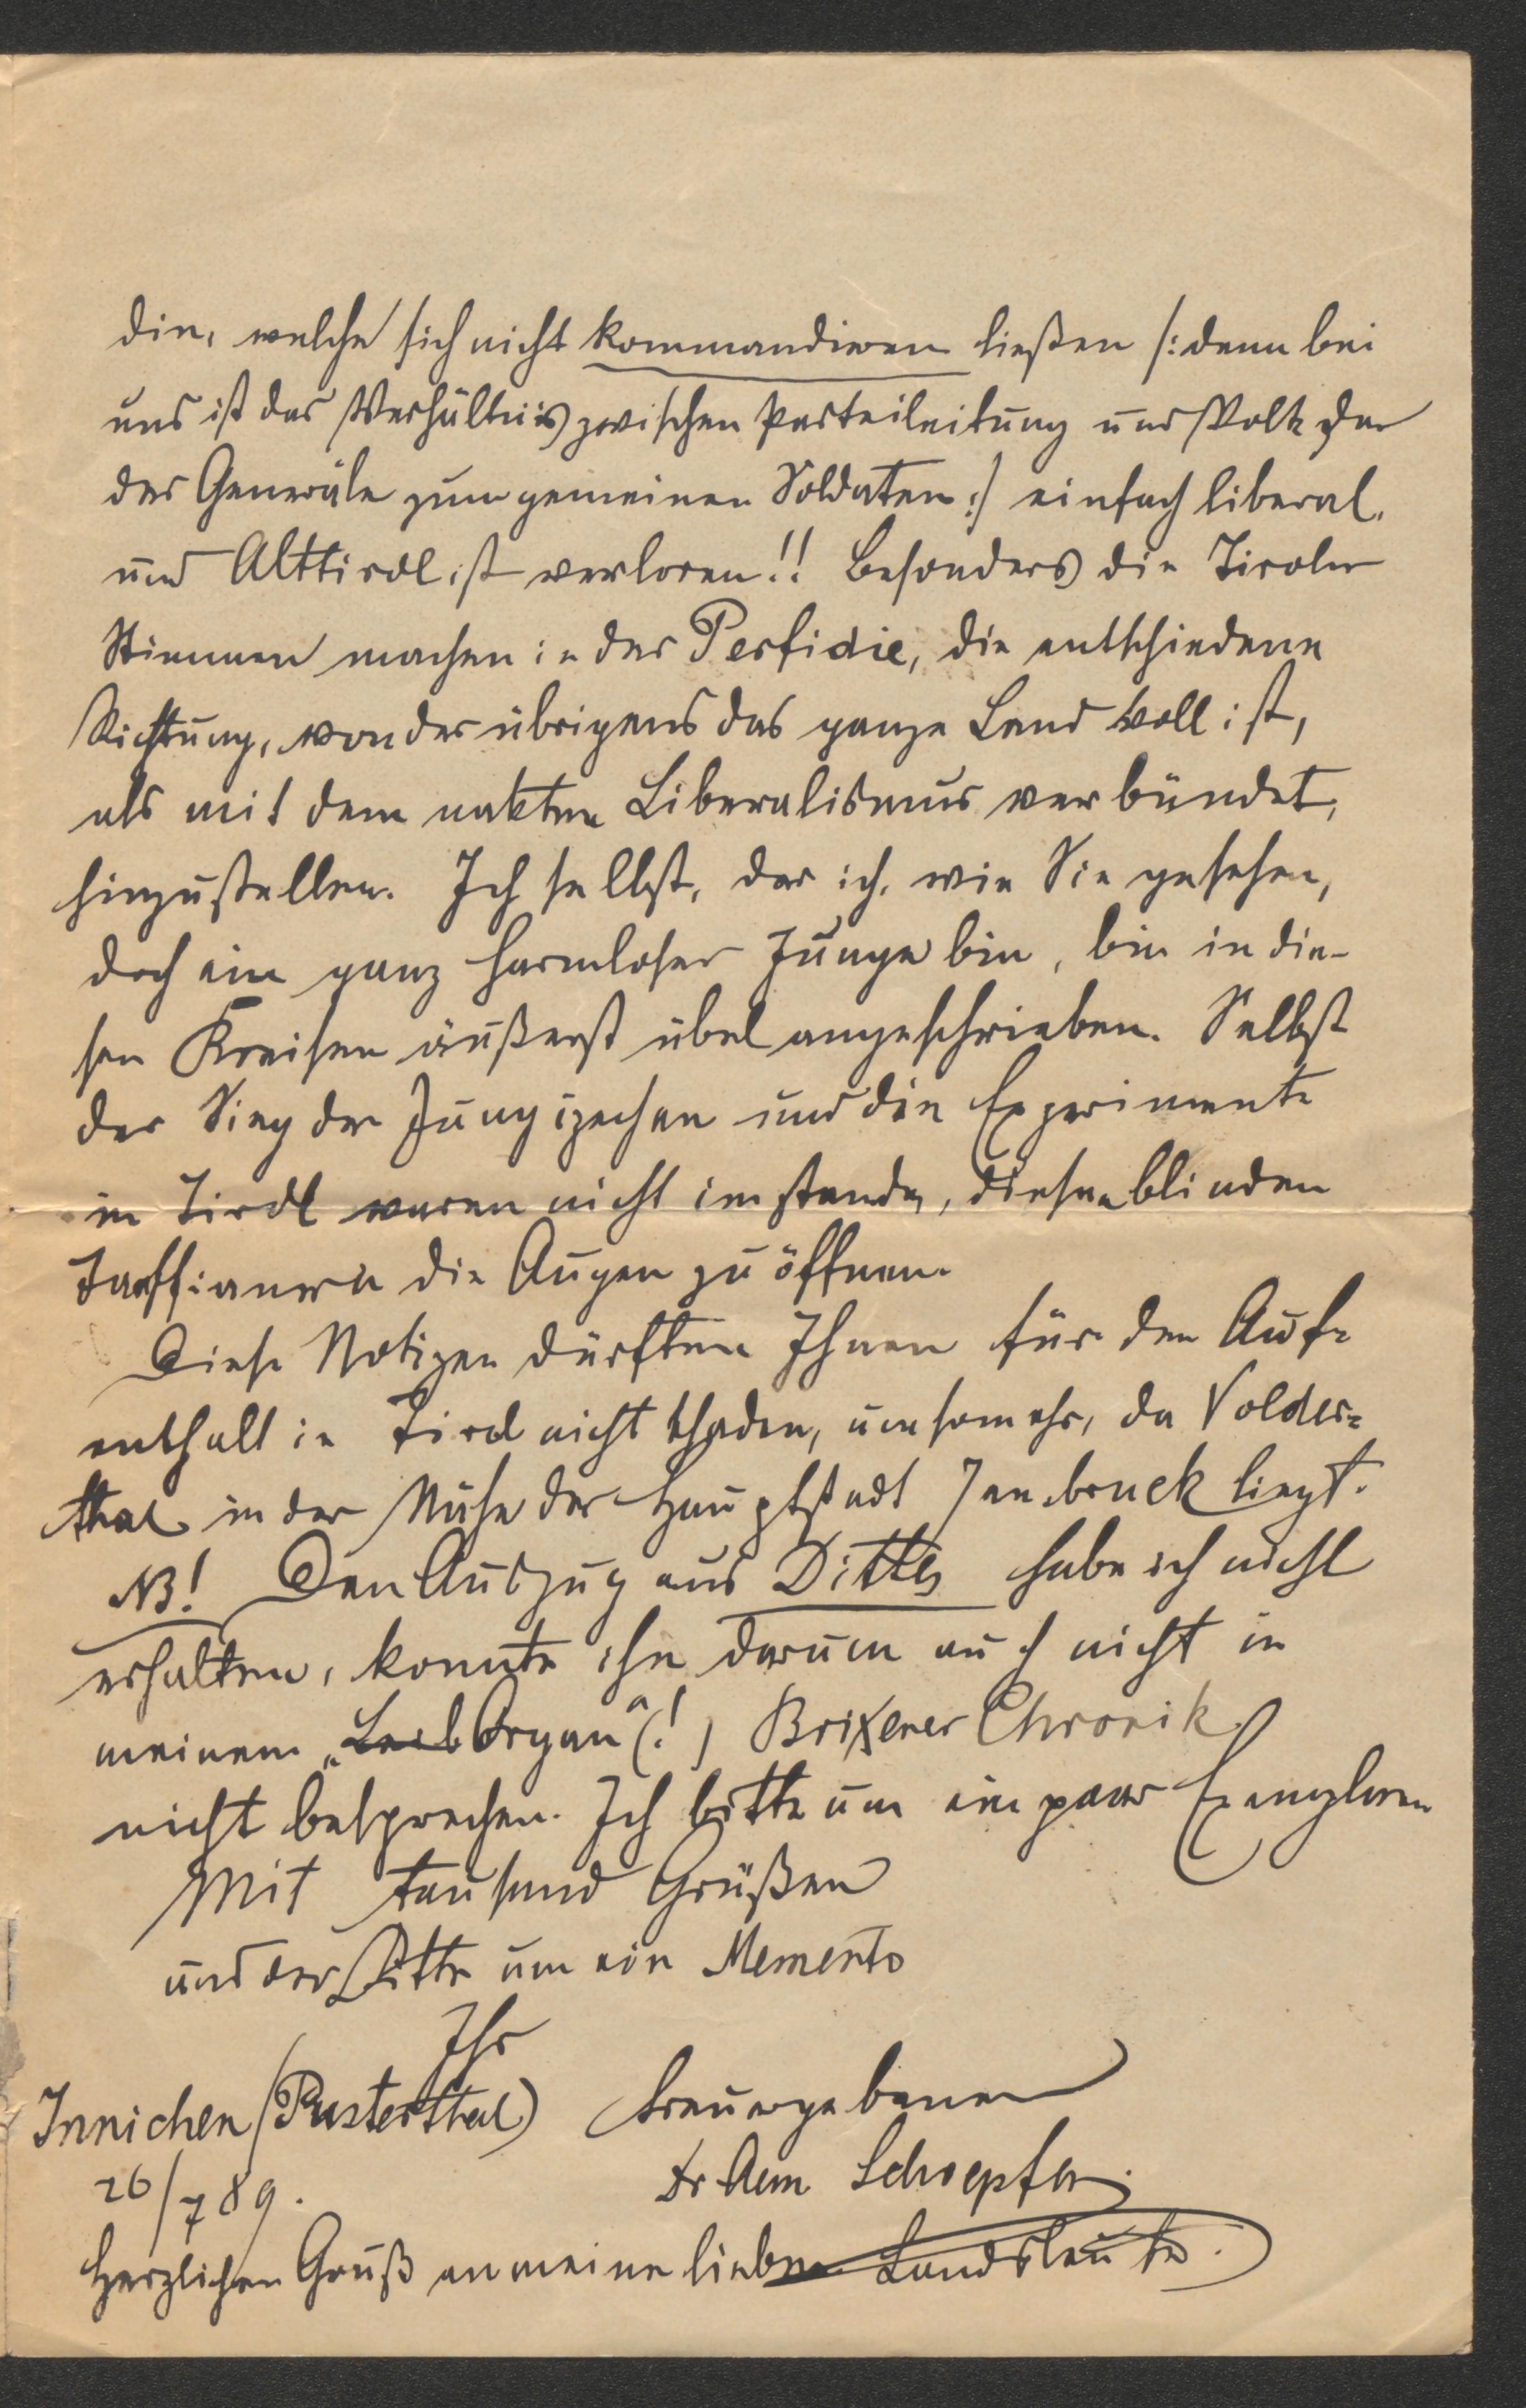 die, welche sich nicht kommandieren ließen /: denn bei
uns ist das Verhältnis zwischen Parteileitung und Volk das
der Generäle zum gemeinen Soldaten :/ einfach liberal,
und Alttirol ist verloren!! Besonders die Tiroler
Stimmen machen in der Perfidie, die entschiedene
Richtung, von der übrigens das ganze Land voll ist,
als mit dem nakten Liberalismus verbündet,
hinzustellen. Ich selbst, der ich, wie Sie gesehen,
doch ein ganz harmloser Junge bin, bin in die-
sen Kreisen äußerst übel angeschrieben. Selbst
der Sieg der Jungczechen und die Experimente
in Tirol waren nicht imstande, diesen blinden
Taaffianern die Augen zu öffnen.
Diese Notizen dürften Ihnen für den Auf-
enthalt in Tirol nicht schaden, umsomehr, da Volder-
thal in der Nähe der Hauptstadt Innsbruck liegt.
NB! Den Auszug aus Dittes habe ich nicht
erhalten, konnte ihn darum auch nicht in
meinem „Leib Organ“ (!) Brixener Chronik
nicht besprechen. Ich bitte um ein paar Exemplare
Mit tausend Grüßen
und der Bitte um ein Memento
Ihr
Innichen (Pusterthal) treuergebener
26/7 89. Dr Aem Schoepfer.
Herzlichen Gruß an meine lieben Landsleute.